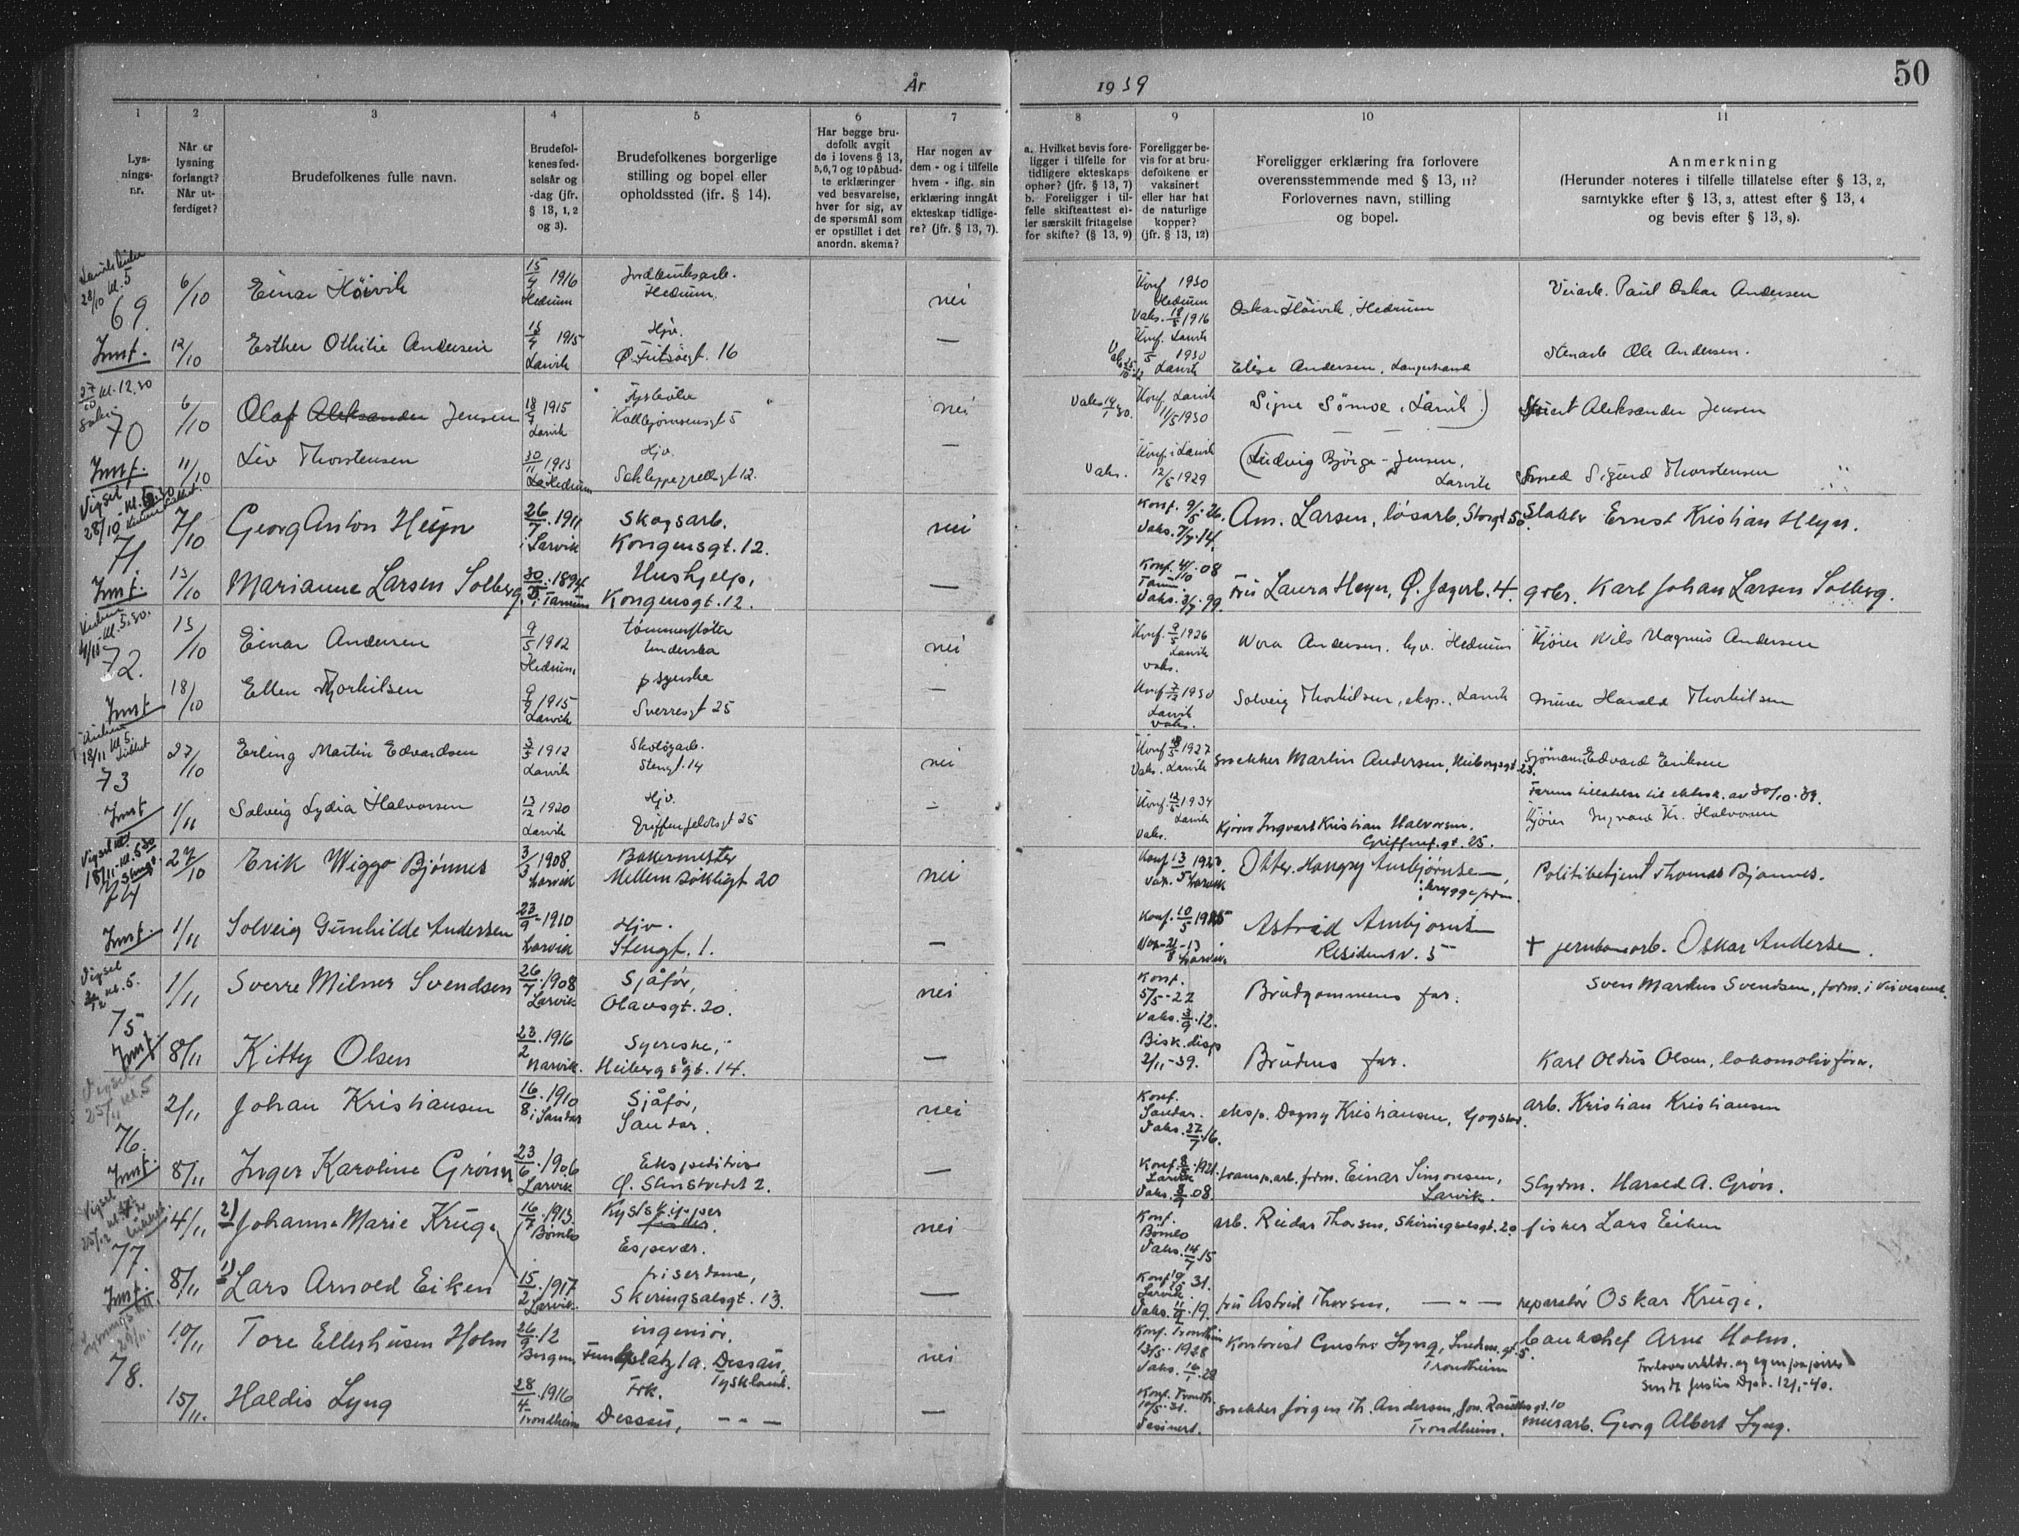 År
1939
50
1
2
3
4
5
6
7
8
9
10
11
Lys-
nings-
nr.
Når er
lysning
forlangt?
Når ut-
ferdiget?
Brudefolkenes fulle navn.
Brudefol-
kenes fød-
selsår og
-dag (jfr.
§ 13, 1, 2
og 3).
Brudefolkenes borgerlige
stilling og bopel eller
opholdssted (ifr. § 14).
Har begge bru-
defolk avgit
de i lovens § 13,
5,6,7 og 10 påbud-
te erklæringer
ved besvarelse,
hver for sig, av
de spørsmål som
er opstillet i det
anordn. skema?
Har nogen av
dem - og i tilfelle
hvem - iflg. sin
erklæring inngåt
ekteskap tidlige-
re? (jfr. § 13, 7).
a. Hvilket bevis fore-
ligger i tilfelle for
tidligere ekteskaps
ophør? (jfr. § 13, 7)
b. Foreligger i til-
felle skifteattest el-
ler særskilt fritagelse
for skifte? (§ 13, 9)
Foreligger be-
vis for at bru-
defolkene er
vaksinert
eller har hat
de naturlige
kopper?
(jfr. § 13, 12)
Foreligger erklæring fra forlovere
overensstemmende med § 13, 11?
Forlovernes navn, stilling
og bopel.
Anmerkning
(Herunder noteres i tilfelle tillatelse efter § 13, 2,
samtykke efter § 13, 3, attest efter § 13, 4
og bevis efter § 13, 8).
28/10 kl. 5
69.
6/10 Einar Höivik 15/4 1916 Hedrum
Jordbruksarb. Hedrum nei
Konf 1930 Hedrum Vaks. 1916
Oskar Höivik, Hedrum
Veiarb. Paul Oskar Andersen
12/10 Esther Othilie Andersen 1915 Larvik
Hjv. Ø. Fritzøegt. 16 —
Konf. Larvik 1930 Larvik
Elise Andersen, Langestrand
Stenarb Ole Andersen.
27/10 kl. 12.30
70
6/10 Olaf Aleksander Jensen 18/7 1915 Larvik
Kolbjørnsensgt 5 nei
Konf. Larvik 11/5 1930
Signe Sömoe (Larvik)
Aleksander Jensen
11/10 Liv Thorstensen 30/11 1913 Hedrum
Hjv. Schleppegrellsgt 12. —
Vaks. Konf. i Larvik 12/5 1929
Ludvig Björge-Jensen, Larvik
Smed Sigurd Thorstensen
Vigsel
28/10
71.
7/10 Georg Anton Heyn 26/7.1911 i Larvik
Skogsarb. Kongensgt. 12. nei
Konf. 9/5.26. Vaks. 7/7.14.
Am. Larsen, løsarb, Storgt 50.
Slakter Ernst Kristian Heyn.
13/10 Marianne Larsen Solberg 1894 i Tanum
Hushjelp, Kongensgt. 12. —
Konf. 4/10.08 Tanum Vaks. 99.
Fru Laura Heyn, Ø. Jegerb. 4.
gbr. Karl Johan Larsen Solberg.
4/11 kl. 5.30.
72.
13/10 Einar Andersen 9/5 1912 Hedrum
tømmerfløter nei
Konf. 9/5 1926 Larvik vaks.
Nora Andersen. hjv. Hedrum
Kjører Nils Magnus Andersen
18/10 Ellen Thorkilsen 9/9 1915 Larvik
syerske Sverresgt 25 —
Konf 1930 Larvik vaks.
Solveig Thorkilsen, eksp., Larvik
murer Harald Thorkilsen
18/11 kl. 5.
73
27/10 Erling Martin Edvardsen 3/5 1912 Larvik
Skotøyarb. Stengt. 14 nei
Konf 1927 Vaks. Larvik
snekker Martin Andersen, Heibergsgt. 23.
Sjömann Edvard Eriksen
1/11 Solveig Lydia Halvorsen 13/12 1920 Larvik
Hjv. Griffenfeldtsgt 25 —
Konf. 1934 Larvik Vaks.
Kjører Ingvart Kristian Halvorsen. Griffenf.gt. 25.
Farens tillatelse til ektesk. av 30/10.39.
Kjører Ingvard Kr. Halvorsen
Vigsel
18/11 kl. 5 30
74
27/10 Erik Wiggo Bjønnes 3/3 1908 Larvik
Bakermester Mellem Bøkligt 20 nei
Konf 13/5 Larvik
Ambjørnsen, bryggeform.
Politibetjent Thomas Bjønnes.
1/11 Solveig Gunhilde Andersen 23/9-1910 Larvik
Hjv. Stengt. 1. —
Konf. 10/5 Larvik
Astrid Ambjørnsen Residensv. 5
+ jernbanearb. Oskar Andersen.
Vigsel kl. 5.
75
1/11 Sverre Milner Svendsen 26/7.1908 Larvik
Sjåfør, Olavsgt. 20. nei
Konf. 5/5-22 Vaks. 3/9.12.
Brudgommens far.
Sven Markus Svendsen, form. i Veivesenet.
8/11 Kitty Olsen 23/2.1916 Narvik.
Syerske, Heibergsgt. 14. —
Bisk. disp 2/11-39.
Brudens far.
Karl Oldus Olsen, lokomotivfører.
Vigsel
25/11 kl. 5
76.
2/11 Johan Kristiansen 16/8.1910 i Sandar
Sjåfør, Sandar. nei
Konf. Sandar. Vaks. 27/7.16.
eksp. Dagny Kristiansen, Gogstad.
arb. Kristian Kristiansen
8/11 Inger Karoline Grønn 23/6.1906 Larvik
Ekspeditrise Ø. Stinstvedt 2. —
Konf. 1921. Larvik Vaks. 08.
transp.arb. form. Einar Simonsen, Larvik.
Harald A. Grön.
Vigsel
77.
4/11 2) Johanna Marie Kruge 16/7.1913. Bømlo
Kystskipper Espevær. nei
Konf. Bømlo Vaks. 14/7 15
arb. Reidar Thorsen, Skiringsalsgt. 20
fisker Lars Eiken
8/11 1) Lars Arnold Eiken 15/2.1917 Larvik.
friserdame, Skiringsalsgt. 13. —
Konf. 31. Larvik Vaks. 19.
fru Astrid Thorsen, — " —
reparatør Oskar Kruge.
78.
10/11 Tore Ellerhusen Holm 26/9.12 Bergen
ingeniør. 1a. Dessau, Tyskland. nei
Konf. Trondheim 13/5.1928 Vaks.
Kontorist Gustav Lyng, Trondheim
banksjef Arne Holm.
Forlovererklær. og egen papirer
sendt Justis Dept. 12/1-40.
15/11. Haldis Lyng 28/4.1916 Trondheim
Frk. Dessau, — " — —
Konf. Trondh. 31.
snekker Jørgen Th. Andersen, Trondheim.
murarb. Georg Albert Lyng.